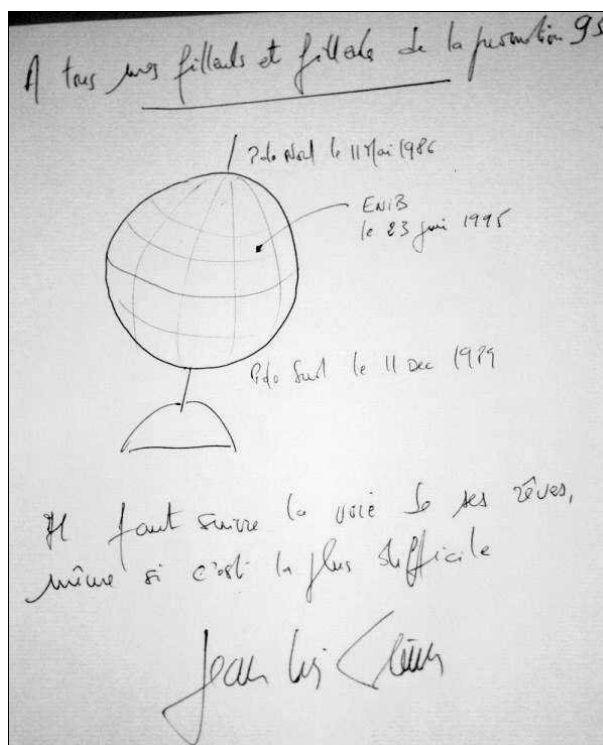 A tous mes filleuls et filleules de la promotion 95
Pole Nord le 11 Mai 1986
ENIB
le 23 juin 1995
Pole Sud le 11 Dec 1989
Il faut suivre la voie de ses rêves,
même si c'est la plus difficile
Jean Louis Etienne